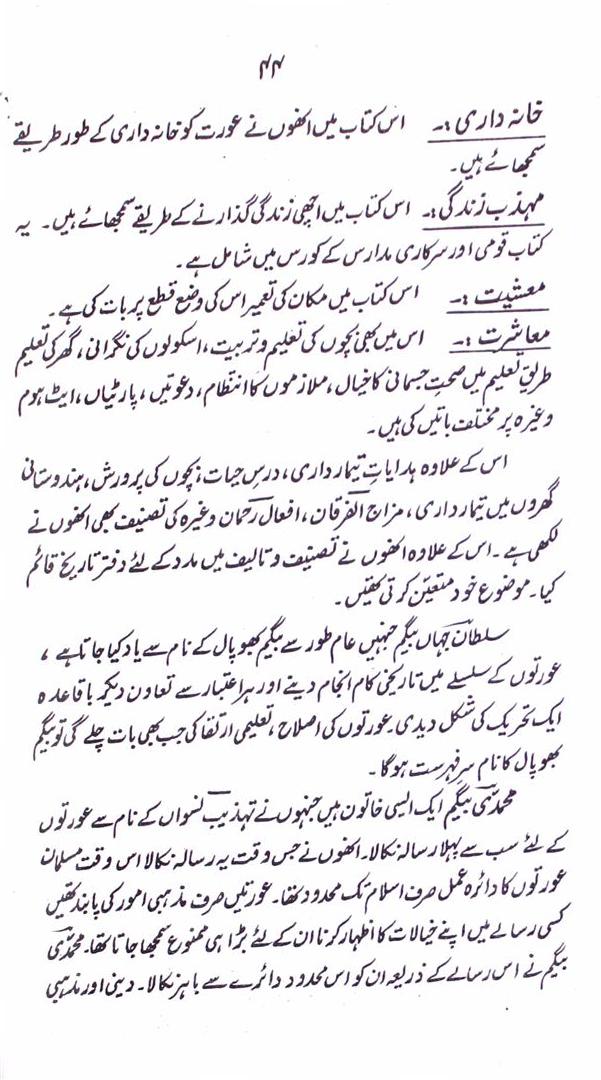 ۴۴
خانہ داری :۔ اس کتاب میں انھوں نے عورت کو خانہ داری کے طور طریقے
سمجھائے ہیں۔
مہذب زندگی :۔ اس کتاب میں اچھی زندگی گذارنے کے طریقے سمجھائے ہیں۔ یہ
کتاب قومی اور سرکاری مدارس کے کورس میں شامل ہے۔
معشیت :۔ اس کتاب میں مکان کی تعمیر اس کی وضع قطع پر بات کی ہے۔
معاشرت :۔ اس میں بھی بچوں کی تعلیم و تربیت، اسکولوں کی نگرانی، گھر کی تعلیم
طریق تعلیم میں صحتِ جسمانی کا خیال، ملازموں کا انتظام، دعوتیں، پارٹیاں، ایٹ ہوم
وغیرہ پر مختلف باتیں کی ہیں۔
اس کے علاوہ ہدایاتِ تیمارداری، درسِ حیات، بچوں کی پرورش، ہندوستانی
گھروں میں تیمارداری، مزاج الفرقان، افعال رحمان وغیرہ کی تصنیف بھی انھوں نے
لکھی ہے۔ اس کے علاوہ انھوں نے تصنیف و تالیف میں مدد کے لئے دفتر تاریخ قائم
کیا۔ موضوع خود متعیّن کرتی تھیں۔
سلطان جہاں بیگم جنہیں عام طور سے بیگم بھوپال کے نام سے یاد کیا جاتا ہے،
عورتوں کے سلسلے میں تاریخی کام انجام دینے اور ہر اعتبار سے تعاون دیکر باقاعدہ
ایک تحریک کی شکل دیدی۔ عورتوں کی اصلاح، تعلیمی ارتقا کی جب بھی بات چلے گی تو بیگم
بھوپال کا نام سرِفہرست ہوگا۔
محمدی بیگم ایک ایسی خاتون ہیں جنہوں نے تہذیب نسواں کے نام سے عورتوں
کے لئے سب سے پہلا رسالہ نکالا۔ انھوں نے جس وقت یہ رسالہ نکالا اس وقت مسلمان
عورتوں کا دائرہ عمل صرف اسلام تک محدود تھا۔ عورتیں صرف مذہبی امور کی پابند تھیں
کسی رسالے میں اپنے خیالات کا اظہار کرنا ان کے لئے بڑا ہی ممنوع سمجھا جاتا تھا۔ محمدی
بیگم نے اس رسالے کے ذریعہ ان کو اس محدود دائرے سے باہر نکالا۔ دینی اور مذہبی